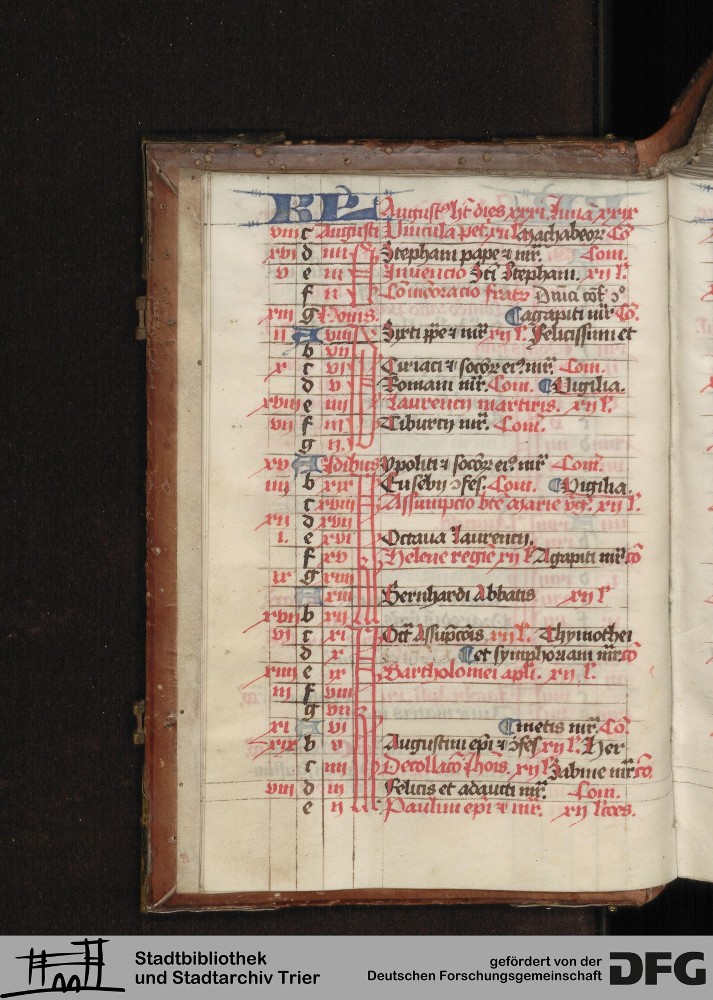 KL Augustꝰ ht dies xxxi luna xxix
viii c Augusti Vincula pet. xii l. Machabeoꝝ Cō
xvi d iiii Stephani pape ⁊ mr̄. Com̄.
v e iii Inuencio Sc̄i Stephani. xii l.
f ii Cōmēoracio fratꝝ
xiii g Nonis. agapiti mr̄ Cō.
ii A viii Sixti pp̄e ⁊ mr̄ xii l. Felicissimi et
b vii
x c vi Ciriaci ⁊ socōꝝ eiꝰ mr̄. Com̄.
d v Romani mr̄. Com̄. Vigilia.
xviii e iiii Laurencii martiris. xii l.
vii f iii Tiburcii mr̄. Com̄.
g ii.
xv A Idibus Ypoliti ⁊ socōꝝ eiꝰ mr̄ Com̄.
iiii b xix Eusebii ɔfes. Com̄. Vigilia.
c xviii Assumpcio bt̄e Marie v̄g. xii l.
xii d xvii
i. e xvi Octaua Laurencii.
f xv Helene regie xii l. Agapiti mr̄. cō
ix g xiiii
A xiii Bernhardi Abbatis xii l
xvii b xii
vi c xi Oct̄ Assūpcōis xii l. Thymothei
d x et symphoriani mr̄ cō
xiiii e ix Bartholomei apl̄i. xii l.
iii f viii
g vii
xi A vi metis mr̄. Cō.
xix b v Augustini ep̄i ⁊ ɔfes xii l. Her
c iiii Decollacō Joh̄is. xii l. Sabine mr̄ cō.
viii d iii Felicis et adaucti mr̄. Com̄.
e ii Paulini ep̄i ⁊ mr̄. xii lc̄oes.
Stadtbibliothek
und Stadtarchiv Trier
gefördert von der
Deutschen Forschungsgemeinschaft
DFG